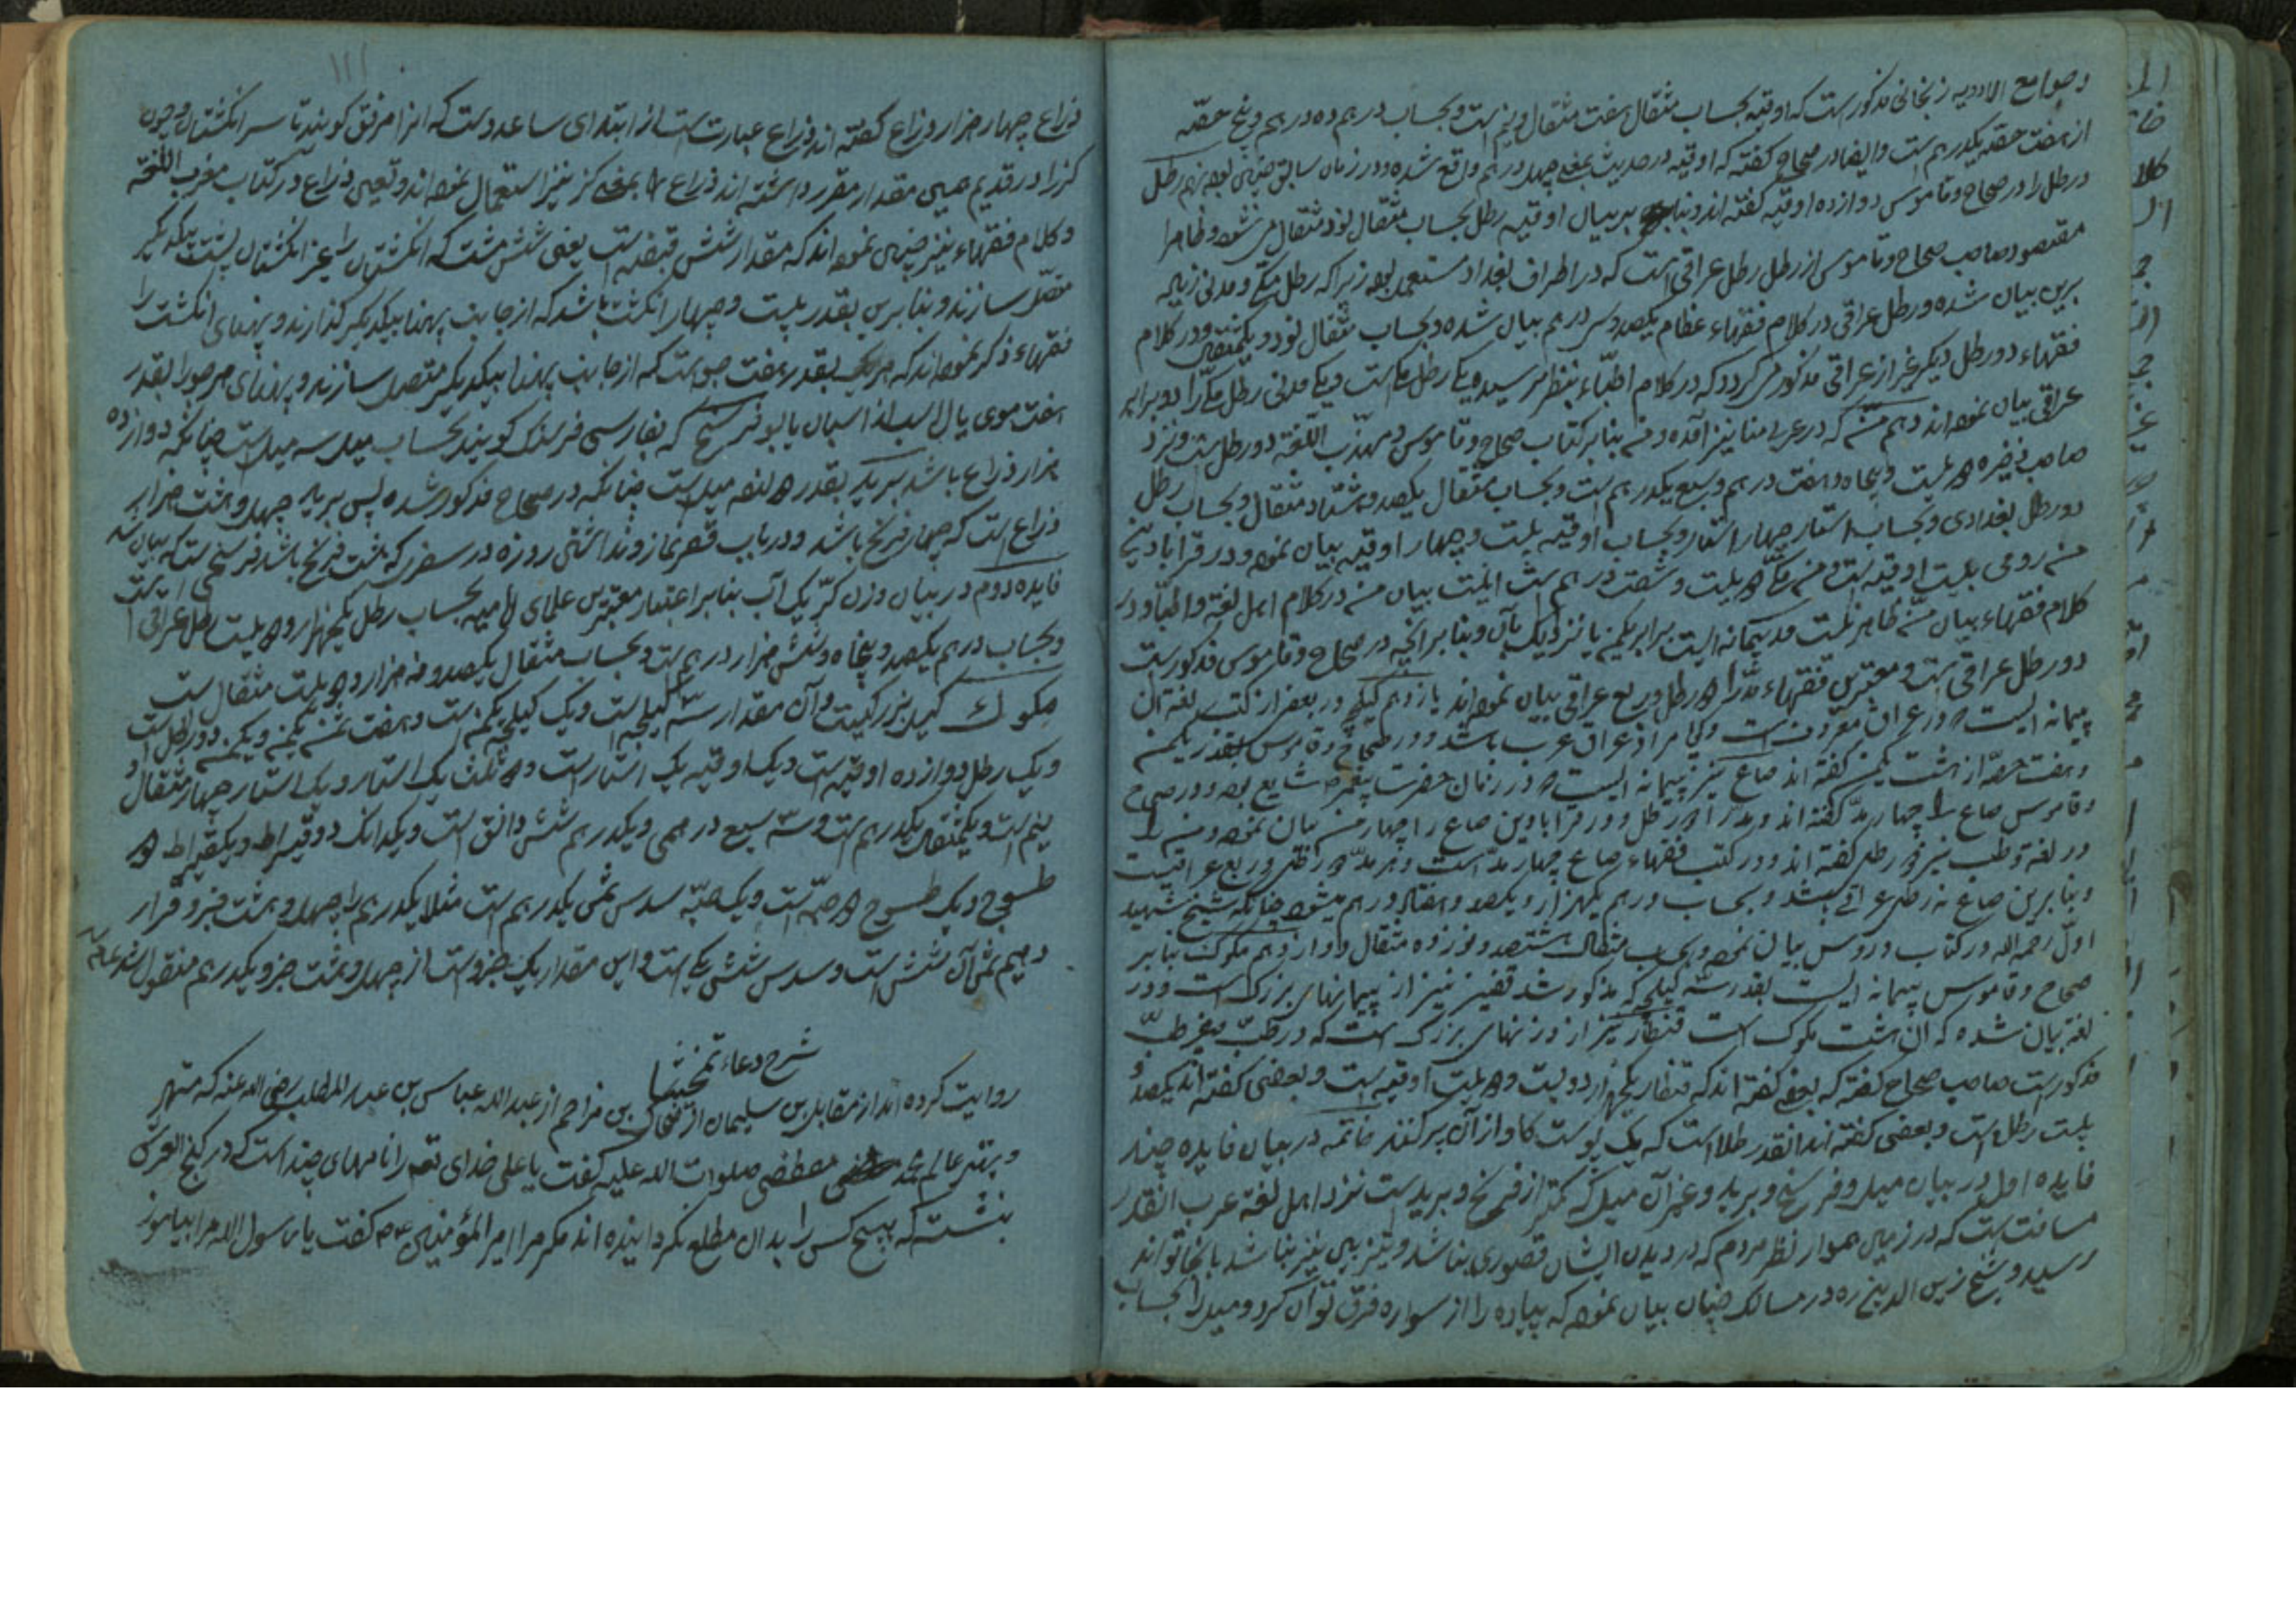 وجوامع الادویه زنجانی مذکورست که اوقیه بحساب مثقال هفت مثقال ونیم است وبحساب درهم ده درهم وپنج حصّه
از هفت حصّه یکدرهم است وایضا در صحاح گفته که اوقیه در حدیث بمعنی چهل درهم واقع شده ودر زمان سابق چنین بوده نزدهم رطل
ورطل را در صحاح وقاموس دوازده اوقیه گفته اند وبنابر بیان اوقیه رطل بحساب مثقال نود مثقال می شود وظاهرا
مقصود صاحب صحاح وقاموس از رطل رطل عراقی است که در اطراف بغداد مستعمل بوده زیرا که رطل مکّی ومدنی زیاده
برین بیان شده ورطل عراقی در کلام فقهاء عظام یکصد وسی درهم بیان شده وبحساب مثقال نود ویکمثقال ودر کلام
فقهاء دو رطل دیگر غیر از عراقی مذکور می گردد که در کلام اطبّاء بنظر نرسیده یکی رطل مکی است ویکی مدنی رطل مکّی را دو برابر
عراقی بیان نموده اند دهم منّ که در عربی منا نیز آمده ومنّ بنابر کتاب صحاح وقاموس ومهذّب اللّغة دو رطل است ونزد
صاحب ذخیره دویست وپنجاه وهفت درهم وسبع یکدرهم است وبحساب مثقال یکصد وهشتاد مثقال وبحساب رطل
دو رطل بغدادی وبحساب استار چهل استار وبحساب اوقیه بیست وچهار اوقیه بیان نموده ودر قرابادین
منّ رومی بیست اوقیه است ومنّ مکّی دویست وشصت درهم است اینست بیان منّ در کلام اهل لغة واطبّا ودر
کلام فقهاء بیان منّ ظاهر نیست مد پیمانه ایست برابر یکمن یا نزدیک بآن وبنابر آنچه در صحاح وقاموس مذکورست
دو رطل عراقی است ومعتبرین فقهاء مدّ را دو رطل وربع عراقی بیان نموده اند یازدهم کیلجه ودر بعضی از کتب لغة آن
پیمانه ایست که در عراق معروف است وگویا مراد عراق عرب باشد ودر صحاح وقاموس بقدر یکمن
وهفت حصّه از هشت یکمن گفته اند صاع نیز پیمانه ایست که در زمان حضرت پیغمبر ص شایع بوده ودر صحاح
وقاموس صاع را چهار مدّ گفته اند ومدّ را دو رطل ودر قرابادین صاع را چهار من بیان نموده ومن را
در لغة وطب نیز دو رطل گفته اند ودر کتب فقهاء صاع چهار مدّ است وهر مدّ دو رطل وربع عراقیست
وبنابرین صاع نه رطل عراقی باشد وبحساب درهم یکهزار ویکصد وهفتاد درهم میشود چنانکه شیخ شهید
اوّل رحمه الله در کتاب دروس بیان نموده وبحساب مثقال هشتصد ونوزده مثقال دوازدهم مکوک بنابر
صحاح وقاموس پیمانه ایست بقدر سه کیلجه که مذکور شد قفیز نیز از پیمانهای بزرگ است ودر
لغة بیان شده که آن هشت مکوک است قنطار نیز از وزنهای بزرگ است که در طبّ وغیر طبّ
مذکورست صاحب صحاح گفته که بعضی گفته اند که قنطار یکهزار ودویست ودو بیست اوقیه است وبعضی گفته اند یکصد و
بیست رطل است وبعضی گفته اند انقدر طلا است که یک پوست گاو از آن پر کنند خاتمه در بیان فایده چند
فایده اول در بیان میل وفرسخ وبرید وغیر آن میل که کمتر از فرسخ وبرید است نزد اهل لغة عرب آنقدر
مسافتست که در زمین هموار نظر مردم که در دیدن ایشان قصوری نباشد وتیزبین نیز نباشد بانجا تواند
رسید وشیخ زین الدین ره در مسالک چنان بیان نموده که پیاده را از سواره فرق توان کرد ومیل را بحساب
۱۱۱
ذراع چهار هزار ذراع گفته اند وذراع عبارتست از ابتدای ساعد دست که انرا مرفق گویند تا سر انگشتان وچون
گز را در قدیم همین مقدار مقرر داشته اند ذراع را بمعنی گز نیز استعمال نموده اند وتعیین ذراع در کتاب مغرب اللغة
وکلام فقهاء نیز چنین نموده اند که مقدار شش قبضه است یعنی شش مشت که انگشتان را غیر انگشتان شست بیکدیگر
متصّل سازند وبنابرین بقدر بیست وچهار انگشت باشد که از جانب پهنا بیکدیگر گذارند وپهنای انگشت را
فقهاء ذکر نموده اند که هر یک بقدر هفت جو است که از جانب پهنا بیکدیگر متصل سازند وپهنای هر جو را بقدر
هفت موی یال اسب از اسبان یابو فرسخ که بفارسی فرسنگ گویند بحساب میل سه میل است چنانکه دوازده
هزار ذراع باشد برید بقدر دوازده میل است چنانکه در صحاح مذکور شده پس برید چهل وهشت هزار
ذراع است که چهار فرسخ باشد ودر باب قصر نماز ونداشتن روزه در سفری که هشت فرسخ باشد فرسخی است که بیان شد
فایده دوم در بیان وزن کرّ یک آب بنابر اعتبار معتبرین علمای امامیه بحساب رطل یکهزار ودویست رطل عراقی است
وبحساب درهم یکصد وپنجاه وشش هزار درهم است وبحساب مثقال یکصد ونه هزار ودویست مثقال است
مکوک کیل بزرگیست وآن مقدار سه کیلجه است ویک کیلجه یکمن است وهفت ثمن یکمن ویکمن دو رطل است
ویک رطل دوازده اوقیه است ویک اوقیه یک استار است ودو ثلث یک استار ویک استار چهار مثقال و
نیم است ویکمثقال یکدرهم است وسه سبع درهمی ویکدرهم شش دانق است ویکدانک دو قیراط ویکقیراط دو
طسوج ویک طسوج دو حبّه است ویک حبّه سدس ثمن یکدرهم است مثلا یکدرهم را چهل وهشت جزو قرار
دهیم ثمن آن شش است وسدس شش یک است واین مقدار یک جزو است از چهل وهشت جزو یکدرهم منقول شد
شرح دعاء تمخیثا
روایت کرده اند از مقاتل بن سلیمان از ضحاک بن مزاحم از عبد الله عباس بن عبد المطلب رضی الله عنه که مهتر
وبهتر عالم محمد مصطفی صلوات الله علیه گفت یا علی خدای تعه را نامهای چند است که در گنج العرش
بنشسته که هیچ کس را بدان مطلع نکردانیده اند مکر مرا امیر المؤمنین ع م گفت یا رسول الله مرا بیاموز